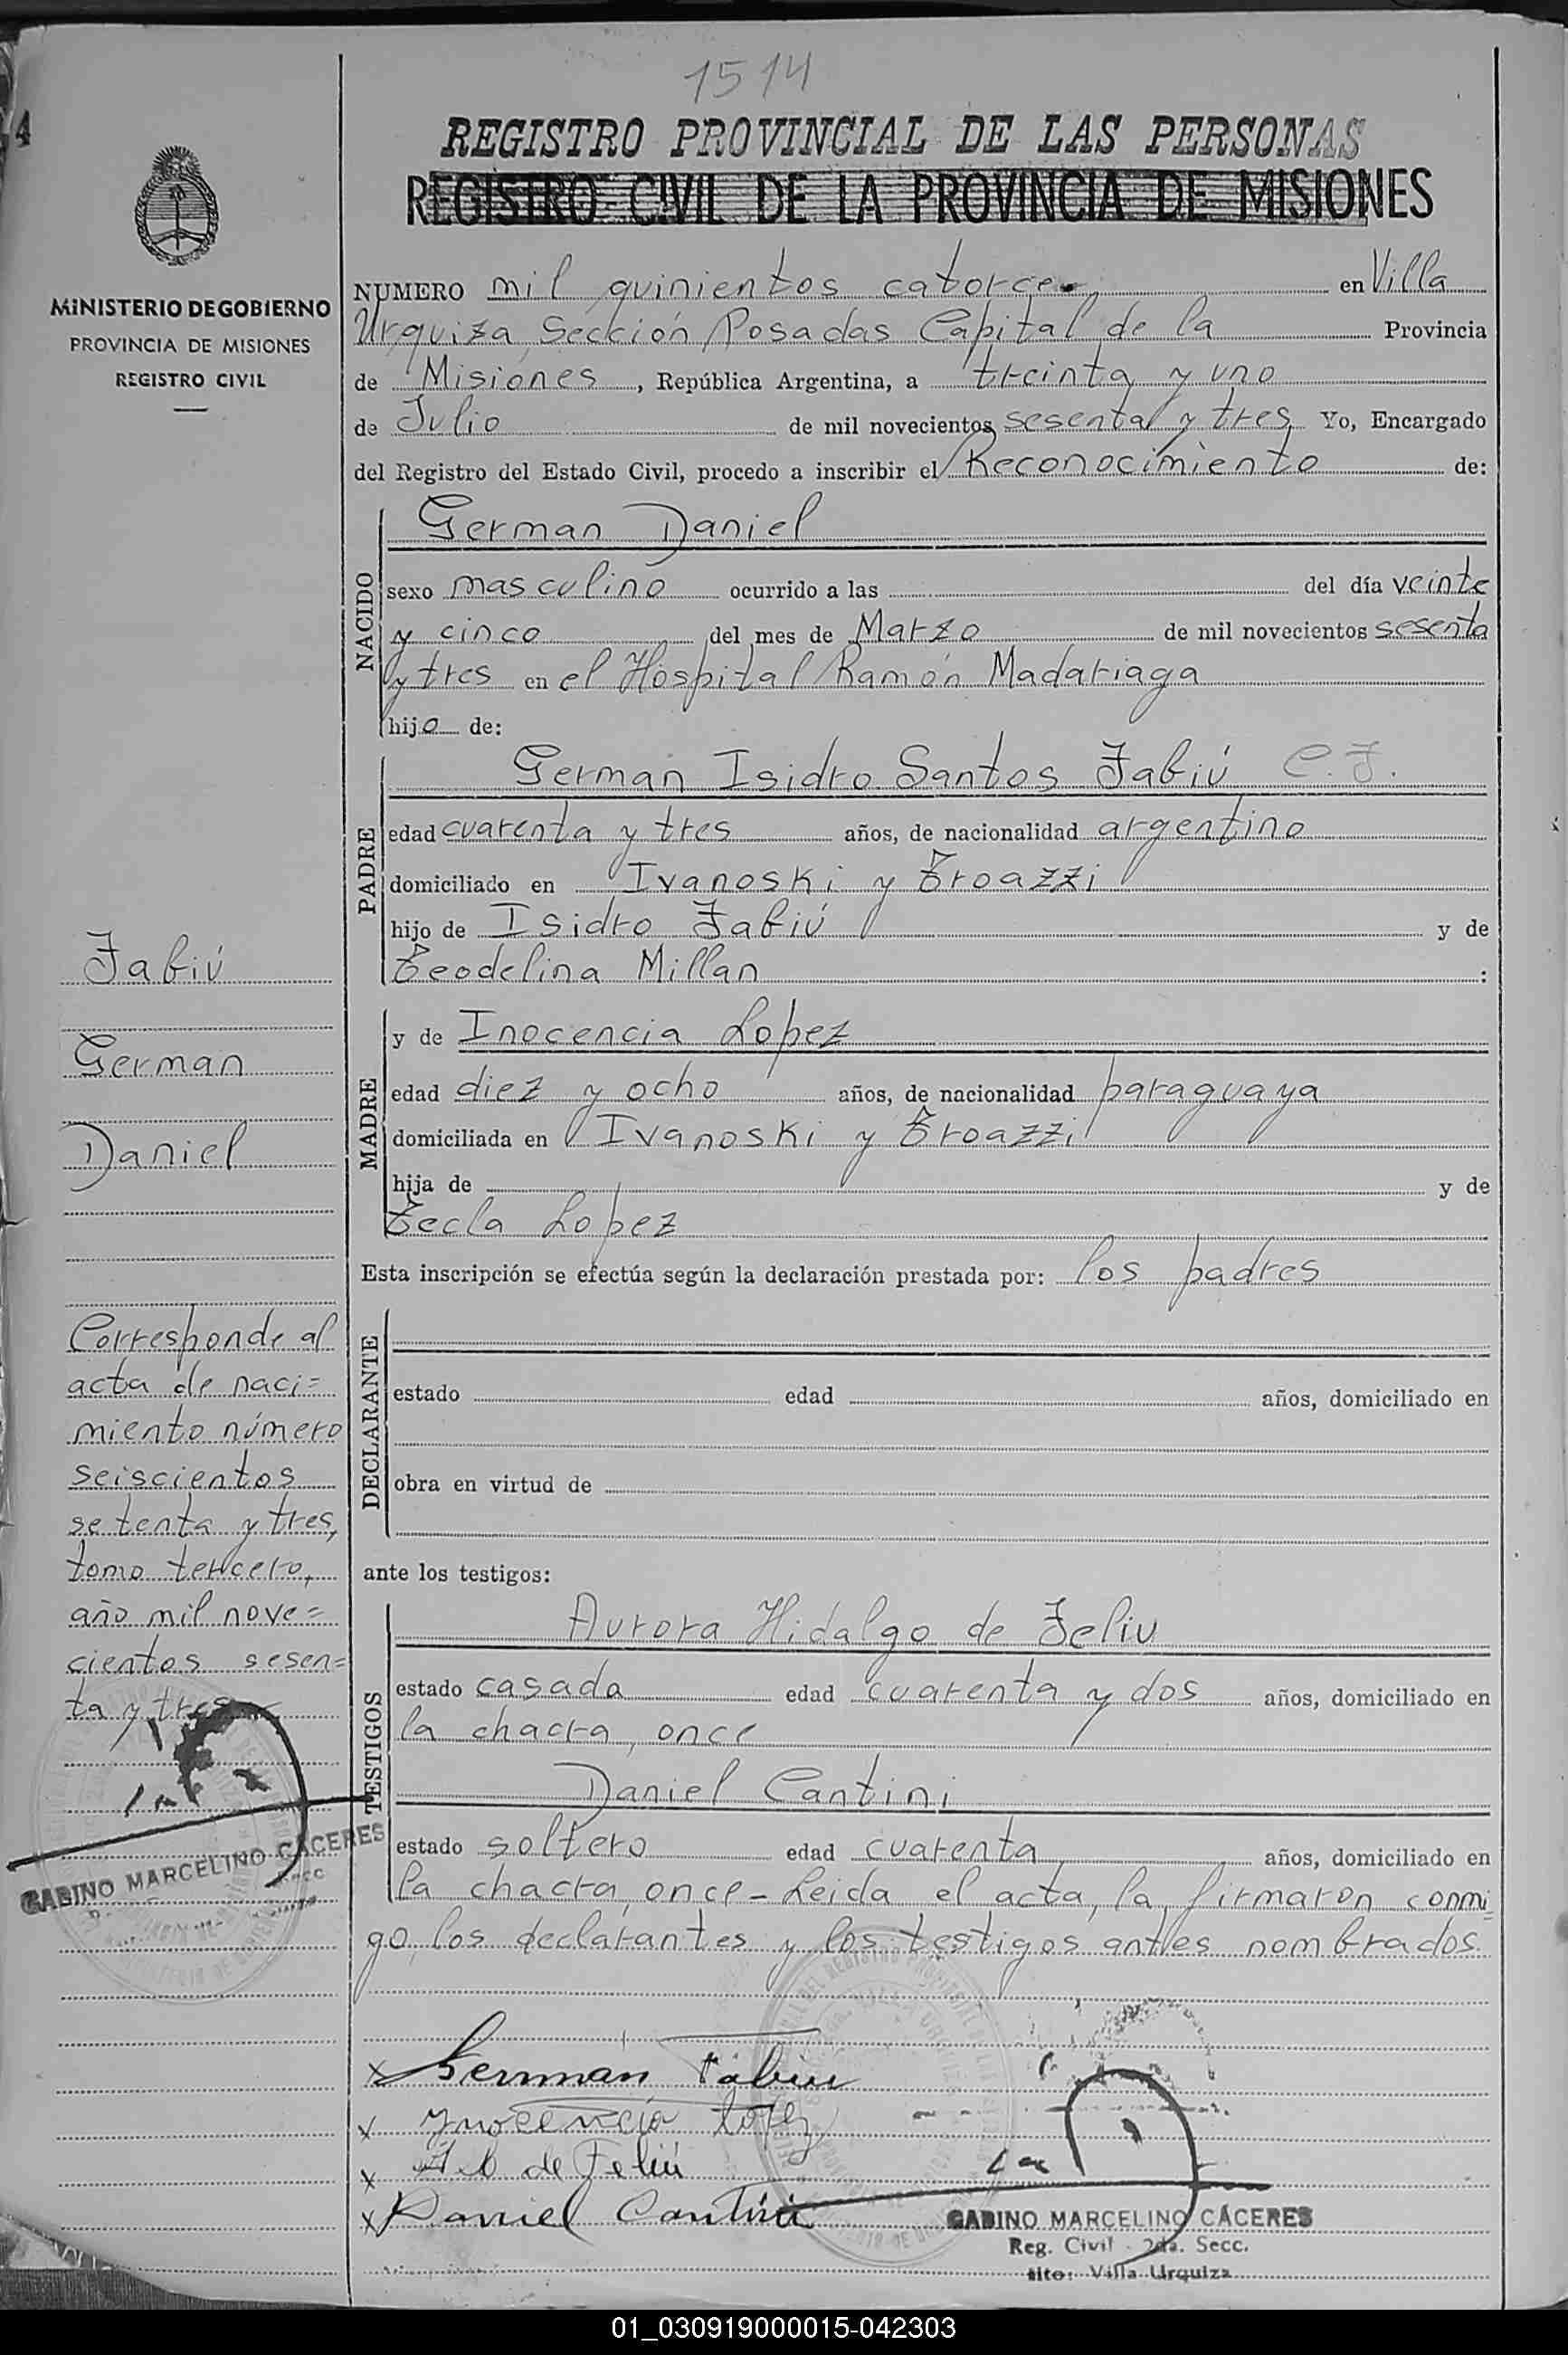 1514
4
REGISTRO PROVINCIAL DE LAS PERSONAS
REGISTRO CIVIL DE LA PROVINCIA DE MISIONES
MINISTERIO DE GOBIERNO
PROVINCIA DE MISIONES
REGISTRO CIVIL
NUMERO mil quinientos catorce, en Villa
Urquiza Sección Posadas Capital de la Provincia
de Misiones, República Argentina, a treinta y uno
de Julio de mil novecientos sesenta y tres Yo, Encargado
del Registro del Estado Civil, procedo a inscribir el Reconocimiento de:
NACIDO
German Daniel
sexo masculino ocurrido a las del día veinte
y cinco del mes de Marzo de mil novecientos sesenta
y tres en el Hospital Ramón Madariaga
hijo de:
PADRE
German Isidro Santos Fabiú C.F.
edad cuarenta y tres años, de nacionalidad argentino
domiciliado en Ivanoski y Troazzi
hijo de Isidro Fabiú y de
Teodelina Millan :
MADRE
y de Inocencia Lopez
edad diez y ocho años, de nacionalidad paraguaya
domiciliada en Ivanoski y Troazzi
hija de y de
Tecla Lopez
Esta inscripción se efectúa según la declaración prestada por: los padres
DECLARANTE
estado edad años, domiciliado en
obra en virtud de
ante los testigos:
TESTIGOS
Aurora Hidalgo de Feliu
estado casada edad cuarenta y dos años, domiciliado en
la chacra, once
Daniel Cantini
estado soltero edad cuarenta años, domiciliado en
la chacra, once - Leida el acta, la firmaron conmi=
go los declarantes y los testigos antes nombrados
Fabiú
German
Daniel
Corresponde al
acta de naci=
miento número
seiscientos
setenta y tres,
tomo tercero,
año mil nove=
cientos sesen=
ta y tres
GABINO MARCELINO CÁCERES
x German Fabiu
x Ynocencia Lopez
x de Feliú
x Daniel Cantini
GABINO MARCELINO CÁCERES
Reg. Civil - 2da. Secc.
sito: Villa Urquiza
01_030919000015-042303